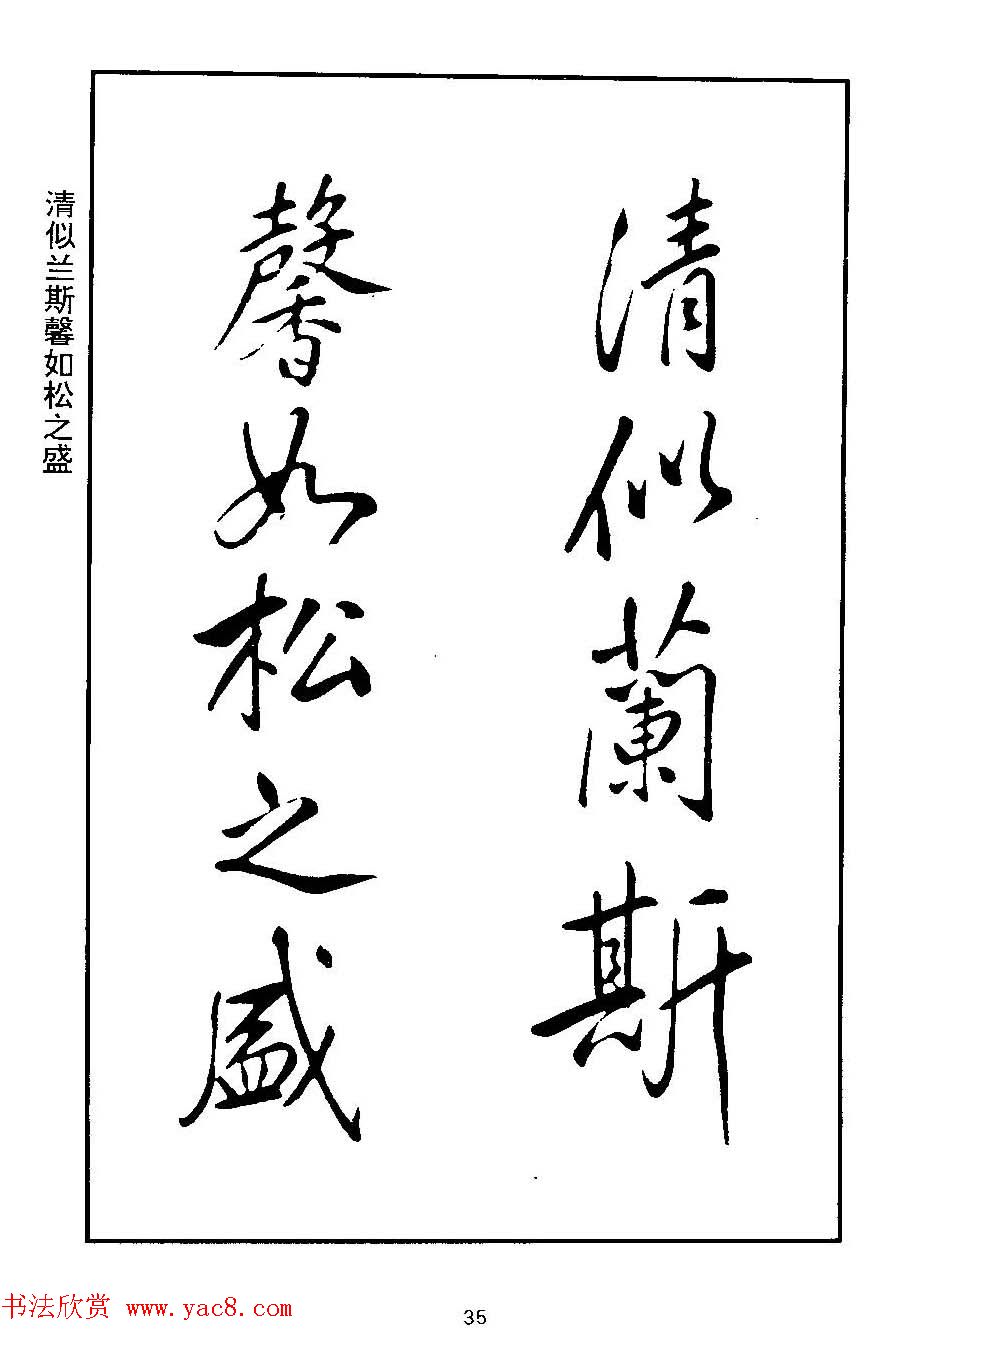 清似蘭斯
馨如松之盛
清似兰斯馨如松之盛
书法欣赏 www.yac8.com
35